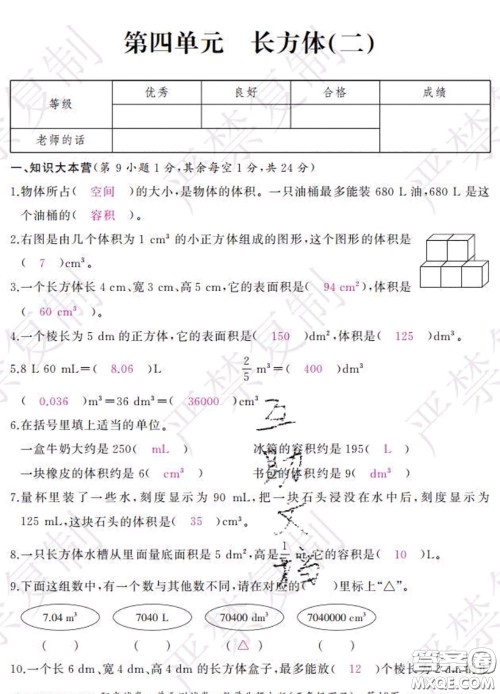 第四单元 长方体(二)
等级 优秀 良好 合格 成绩
老师的话
一、知识大本营(第9小题1分,其余每空1分,共24分)
1.物体所占( 空间 )的大小,是物体的体积。一只油桶最多能装680 L油,680 L是这
个油桶的( 容积 )。
2.右图是由几个体积为1 cm³的小正方体组成的图形,这个图形的体积是
( 7 )cm³。
3.一个长方体长4 cm、宽3 cm、高5 cm,它的表面积是( 94 cm² ),体积是
( 60 cm³ )。
4.一个棱长为5 dm的正方体,它的表面积是( 150 )dm²,体积是( 125 )dm³。
5.8 L 60 mL=( 8.06 )L 2/5 m³=( 400 )dm³
( 0.036 )m³=36 dm³=( 36000 )cm³
6.在括号里填上适当的单位。
一盒牛奶大约是250( mL ) 冰箱的容积约是195( L )
一块橡皮的体积约是6( cm³ ) 书包的体积约是9( dm³ )
7.量杯里装了一些水,刻度显示为90 mL,把一块石头浸没在水中后,刻度显示为
125 mL,这块石头的体积是( 35 )cm³。
8.一只长方体水槽从里面量底面积是5 dm²,高是 m,它的容积是( 10 )L。
9.下面这组数中,有一个数与其他数不同,请在对应的( )里标上“△”。
7.04 m³ 7040 L 70400 dm³ 7040000 cm³
( ) ( ) ( △ ) ( )
10.一个长6 dm、宽4 dm、高5 dm的长方体盒子,最多能放( 12 )个棱长为2 dm
严禁复制
严禁复制
严禁复制
互助文档
答案圈
MXQE.COM